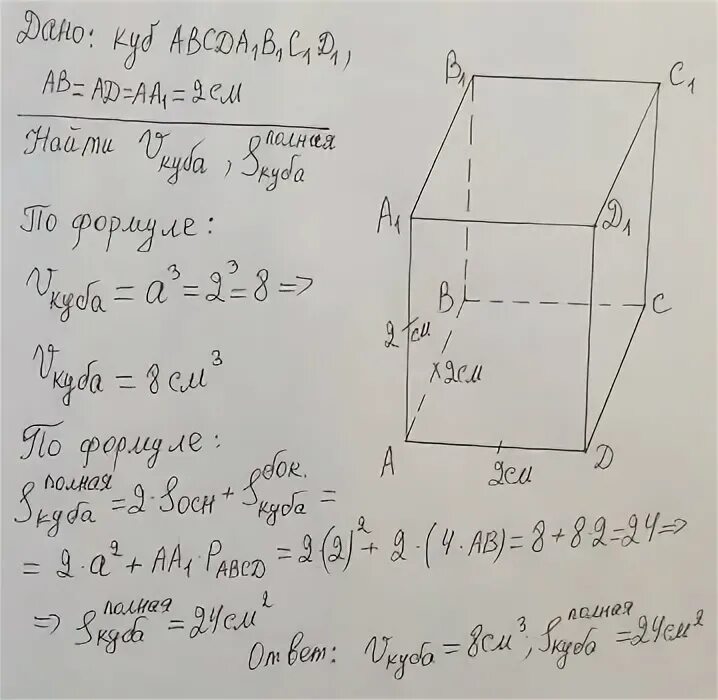 Дано: куб ABCDA₁B₁C₁D₁,
AB=AD=AA₁=2см
Найти Vкуба, Sкуба полная
По формуле:
Vкуба = a³=2³=8 =>
Vкуба = 8 см³
По формуле:
Sкуба полная =2·Sосн + Sкуба бок. =
= 2·a² + AA₁·P_ABCD = 2(2)² + 2·(4·AB)= 8+8·2=24 =>
=> Sкуба полная =24см²
Ответ: Vкуба = 8см³; Sкуба полная =24см²
B₁
C₁
A₁
D₁
B
C
2 см
2см
A
2см
D